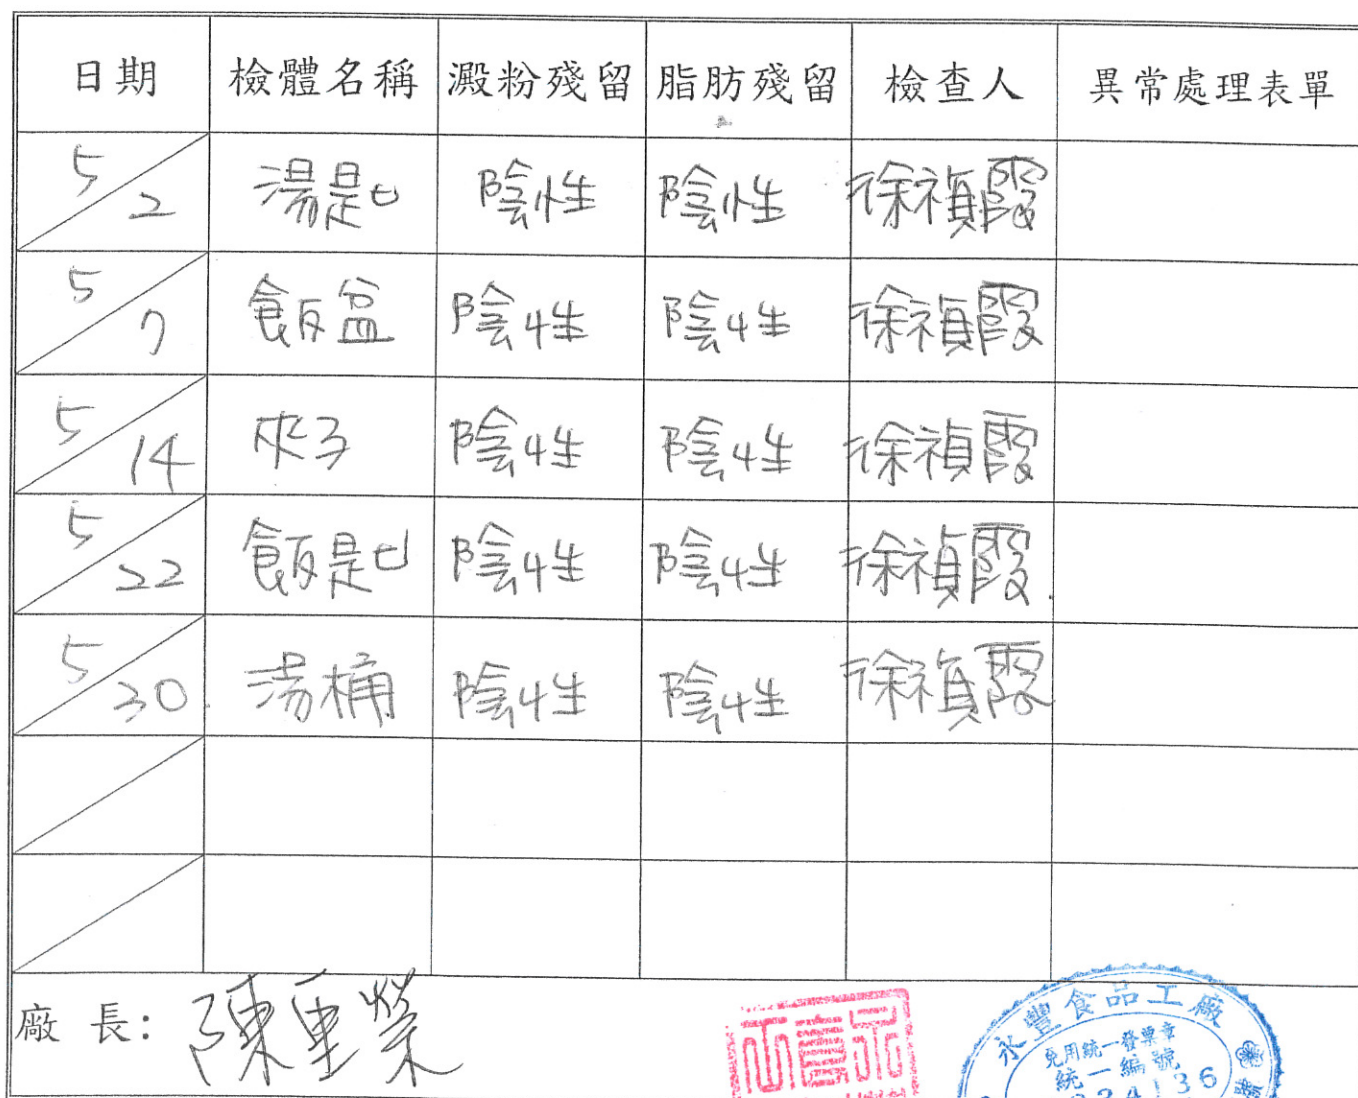 日期 檢體名稱 澱粉殘留 脂肪殘留 檢查人 異常處理表單
5/2 湯匙 陰性 陰性 徐禎霞
5/7 飯盆 陰性 陰性 徐禎霞
5/14 夾子 陰性 陰性 徐禎霞
5/22 飯匙 陰性 陰性 徐禎霞
5/30 湯桶 陰性 陰性 徐禎霞
廠長: 陳重榮
永豐食品工廠
免用統一發票章
統一編號